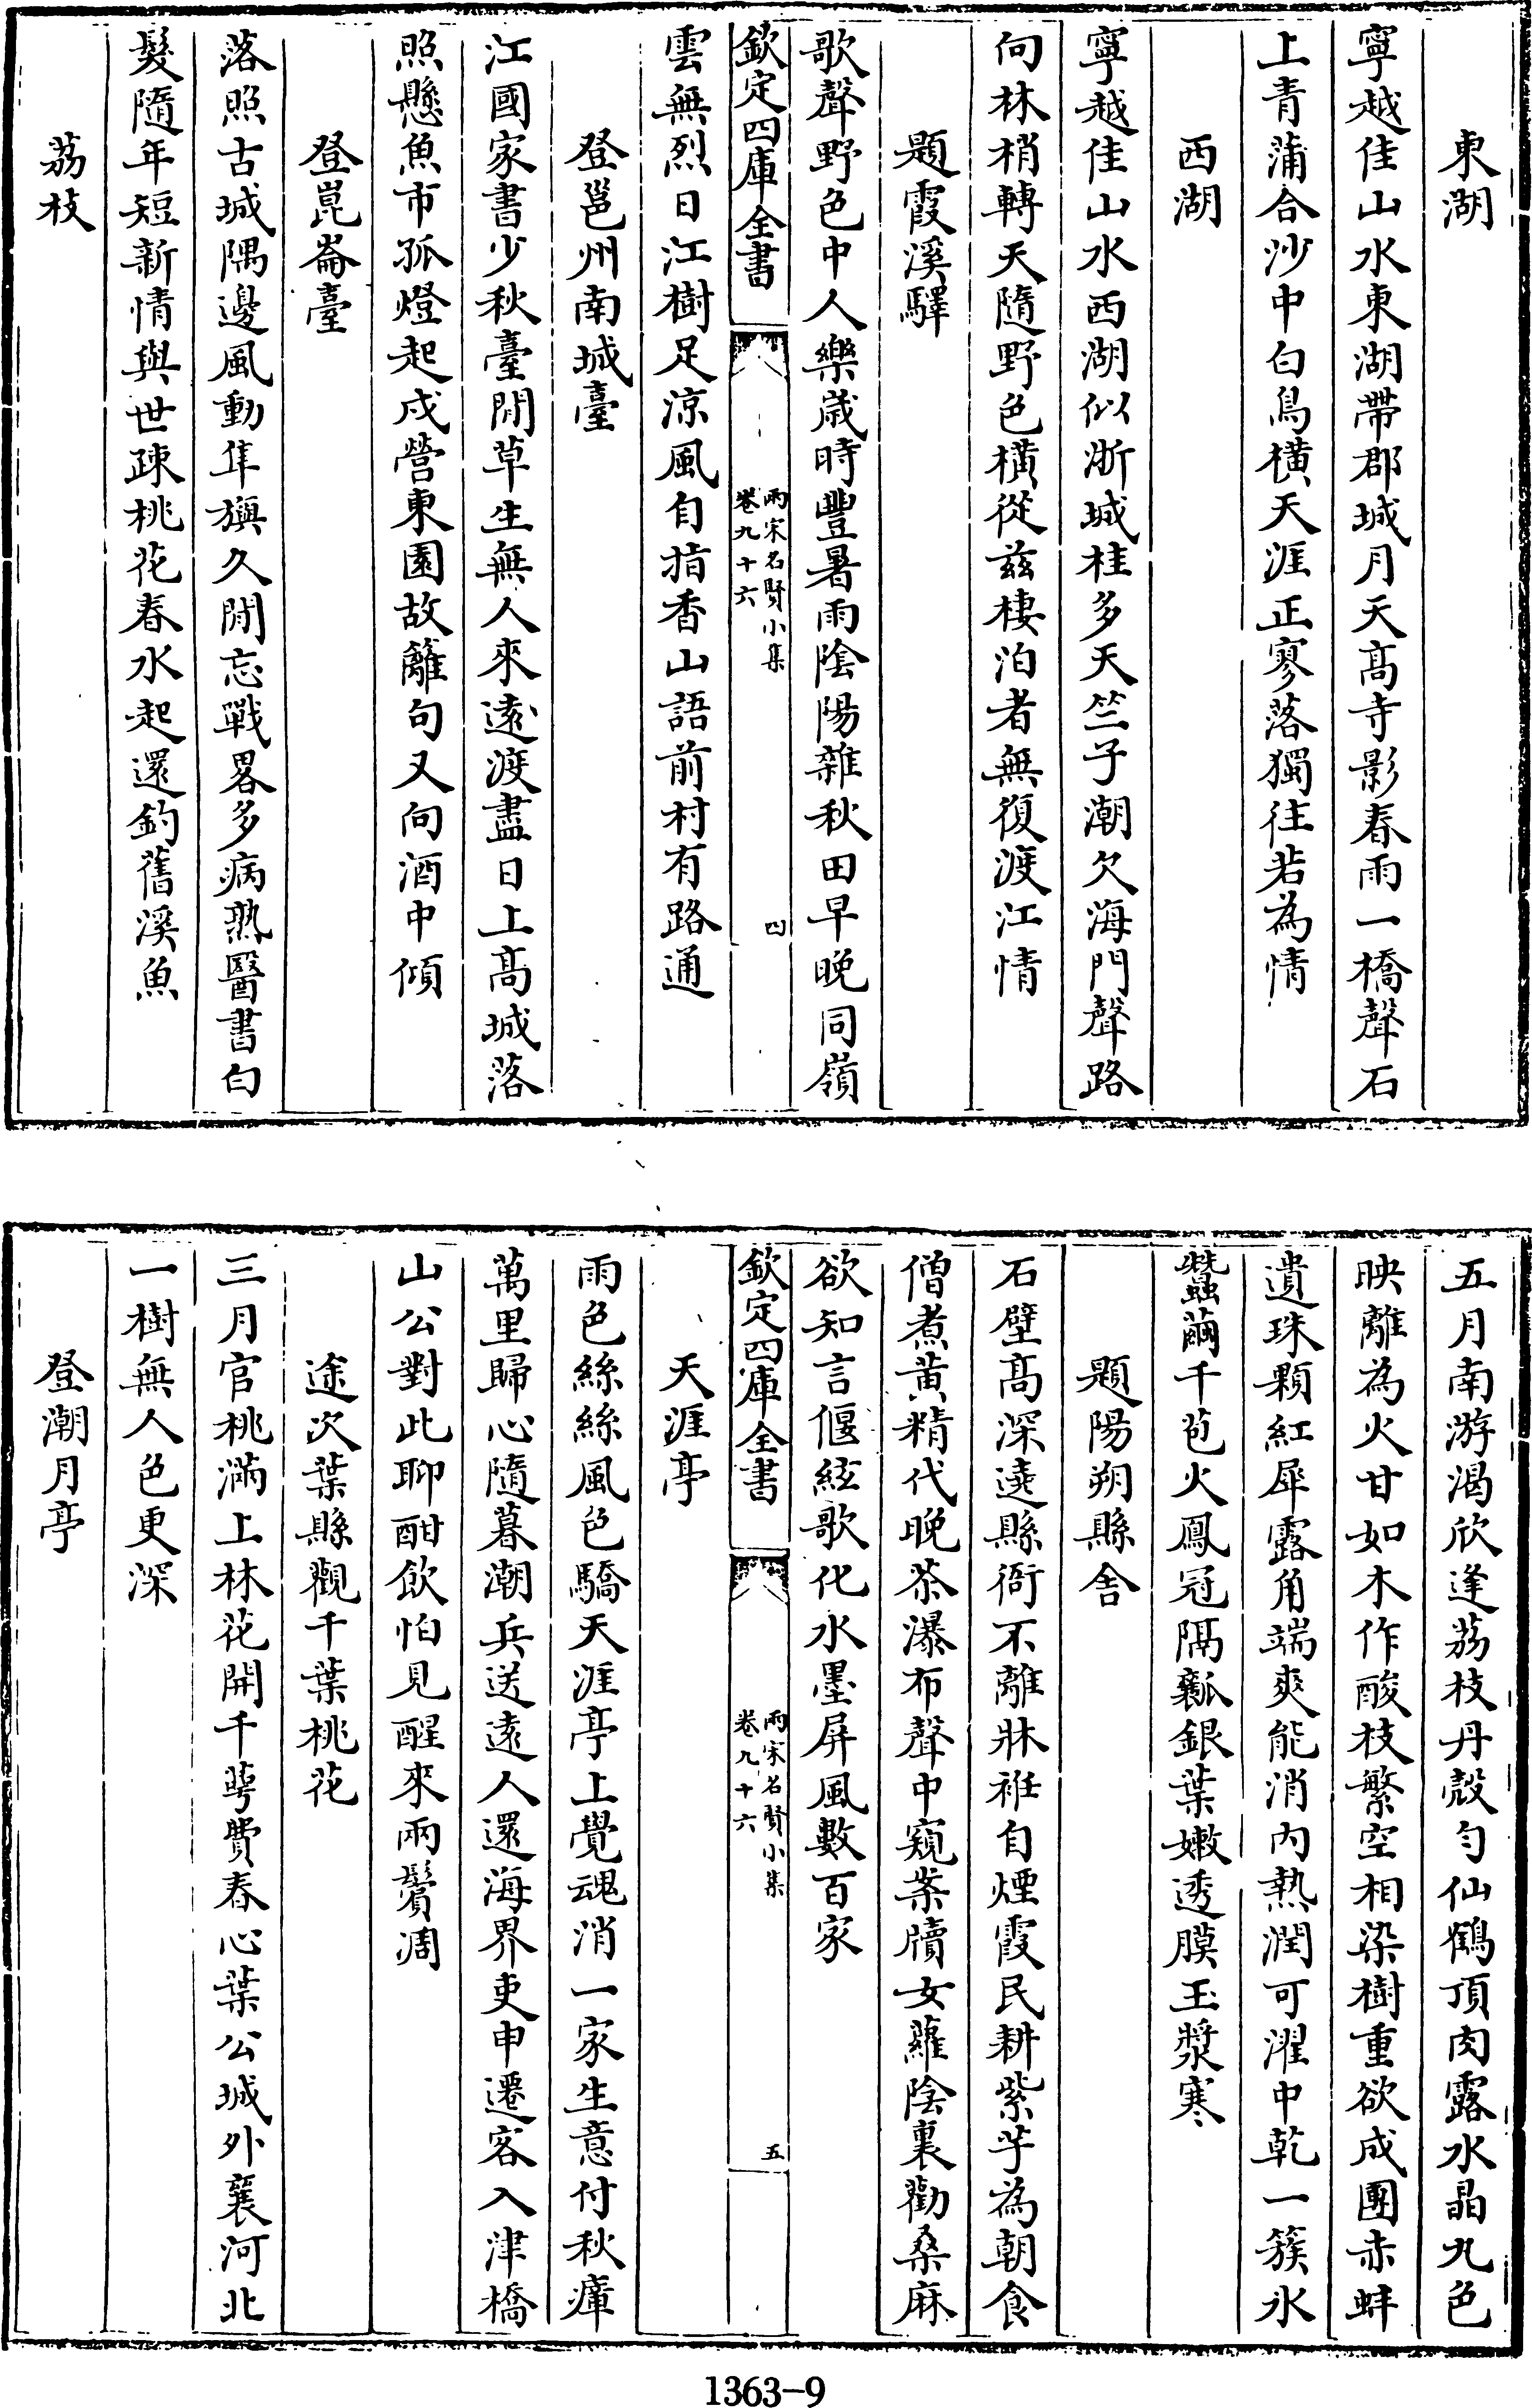 東湖
寧越佳山水東湖帶郡城月天髙寺影春雨一橋聲石
上青蒲合沙中白鳥横天涯正寥落獨往若為情
西湖
寧越佳山水西湖似浙城桂多天竺子潮欠海門聲路
向林梢轉天隨野色横從兹棲泊者無復渡江情
題霞溪驛
歌聲野色中人樂歲時豐暑雨陰陽雜秋田早晚同嶺
欽定四庫全書
兩宋名賢小集
卷九十六
四
雲無烈日江樹足涼風自指香山語前村有路通
登邕州南城臺
江國家書少秋臺閒草生無人來逺渡盡日上髙城落
照懸魚市孤燈起戍營東園故籬句又向酒中傾
登崑崙臺
落照古城隅邊風動隼旟久閒忘戰畧多病熟醫書白
髮隨年短新情與世疎桃花春水起還釣舊溪魚
荔枝
五月南游渴欣逢荔枝丹殻勻仙鶴頂肉露水晶丸色
映離為火甘如木作酸枝繁空相染樹重欲成團赤蚌
遺珠顆紅犀露角端爽能消内熱潤可濯中乾一簇氷
蠶繭千苞火鳳冠隔瓤銀葉嫩透膜玉漿寒
題陽朔縣舎
石壁髙深遶縣衙不離牀袵自煙霞民耕紫芋為朝食
僧煮黄精代晚茶瀑布聲中窺案牘女蘿陰裏勸桑麻
欲知言偃絃歌化水墨屏風數百家
欽定四庫全書
兩宋名賢小集
卷九十六
五
天涯亭
雨色絲絲風色驕天涯亭上覺魂消一家生意付秋瘴
萬里歸心隨暮潮兵送逺人還海界吏申遷客入津橋
山公對此聊酣飲怕見醒來兩鬢凋
途次葉縣觀千葉桃花
三月官桃滿上林花開千萼費春心葉公城外襄河北
一樹無人色更深
登潮月亭
1363-9